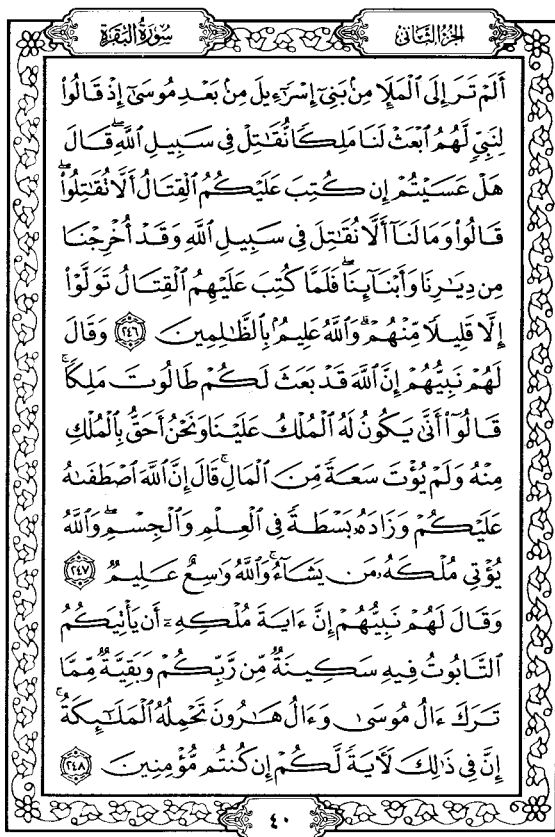 سُورَةُ البَقَرَةِ
الجُزْءُ الثَّانِى
أَلَمْ تَرَ إِلَى ٱلْمَلَإِ مِنۢ بَنِىٓ إِسْرَٰٓءِيلَ مِنۢ بَعْدِ مُوسَىٰٓ إِذْ قَالُوا۟
لِنَبِىٍّ لَّهُمُ ٱبْعَثْ لَنَا مَلِكًا نُّقَٰتِلْ فِى سَبِيلِ ٱللَّهِۖ قَالَ
هَلْ عَسَيْتُمْ إِن كُتِبَ عَلَيْكُمُ ٱلْقِتَالُ أَلَّا تُقَٰتِلُوا۟ۖ
قَالُوا۟ وَمَا لَنَآ أَلَّا نُقَٰتِلَ فِى سَبِيلِ ٱللَّهِ وَقَدْ أُخْرِجْنَا
مِن دِيَٰرِنَا وَأَبْنَآئِنَاۖ فَلَمَّا كُتِبَ عَلَيْهِمُ ٱلْقِتَالُ تَوَلَّوْا۟
إِلَّا قَلِيلًا مِّنْهُمْۗ وَٱللَّهُ عَلِيمٌۢ بِٱلظَّٰلِمِينَ ٢٤٦ وَقَالَ
لَهُمْ نَبِيُّهُمْ إِنَّ ٱللَّهَ قَدْ بَعَثَ لَكُمْ طَالُوتَ مَلِكًاۚ
قَالُوٓا۟ أَنَّىٰ يَكُونُ لَهُ ٱلْمُلْكُ عَلَيْنَا وَنَحْنُ أَحَقُّ بِٱلْمُلْكِ
مِنْهُ وَلَمْ يُؤْتَ سَعَةً مِّنَ ٱلْمَالِۚ قَالَ إِنَّ ٱللَّهَ ٱصْطَفَىٰهُ
عَلَيْكُمْ وَزَادَهُۥ بَسْطَةً فِى ٱلْعِلْمِ وَٱلْجِسْمِۖ وَٱللَّهُ
يُؤْتِى مُلْكَهُۥ مَن يَشَآءُۚ وَٱللَّهُ وَٰسِعٌ عَلِيمٌ ٢٤٧
وَقَالَ لَهُمْ نَبِيُّهُمْ إِنَّ ءَايَةَ مُلْكِهِۦٓ أَن يَأْتِيَكُمُ
ٱلتَّابُوتُ فِيهِ سَكِينَةٌ مِّن رَّبِّكُمْ وَبَقِيَّةٌ مِّمَّا
تَرَكَ ءَالُ مُوسَىٰ وَءَالُ هَٰرُونَ تَحْمِلُهُ ٱلْمَلَٰٓئِكَةُۚ
إِنَّ فِى ذَٰلِكَ لَءَايَةً لَّكُمْ إِن كُنتُم مُّؤْمِنِينَ ٢٤٨
٤٠